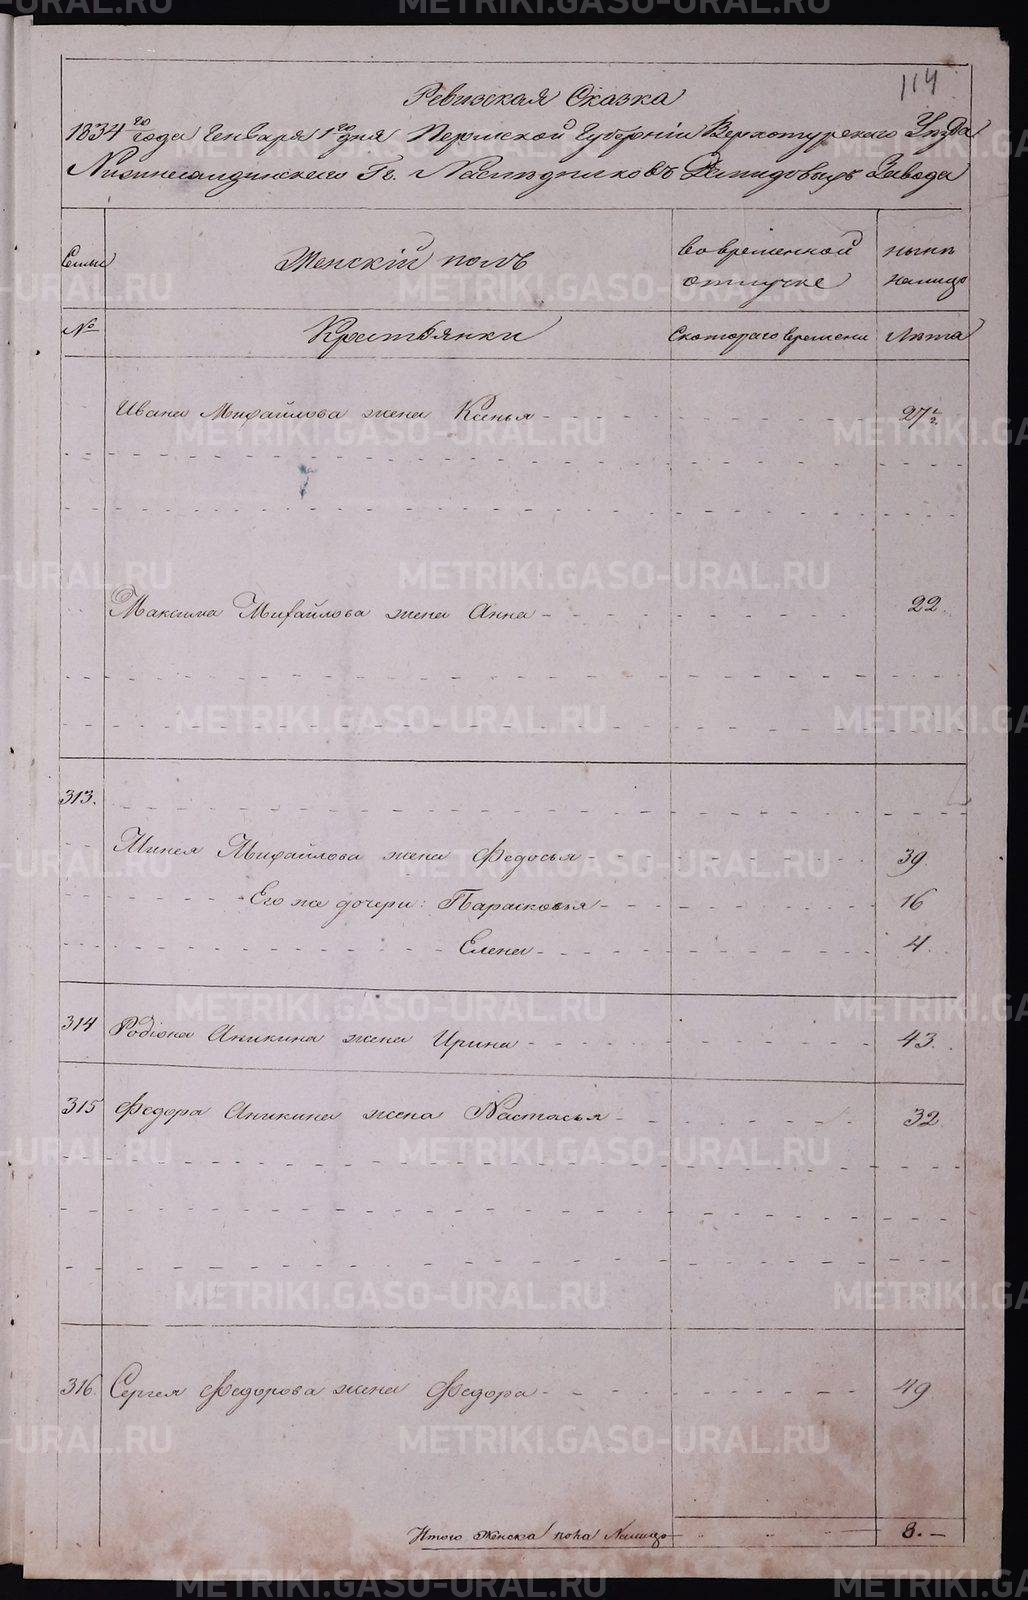 114
Ревизская Сказка
1834го года Генваря 1го дня Пермской Губерніи Верхотурского Уѣзда
Нижнесалдинского Гг. Наслѣдниковъ Демидовыхъ Завода
Семьи
Женскій полъ
во временной отлучке
нынѣ налицо
№
Крестьянки
Скотораго времени
Лѣта
Ивана Михайлова жена Ксенья 27 1/2
Максима Михайлова жена Анна 22.
313.
Минея Михайлова жена Федосья 39.
Его же дочери: Парасковья 16
Елена 4.
314 Родіона Аникина жена Ирина 43.
315 Федора Аникина жена Настасья 32.
316. Сергея Федорова жена Федора 49
Итого Женска пола Налицо 8.
METRIKI.GASO-URAL.RU